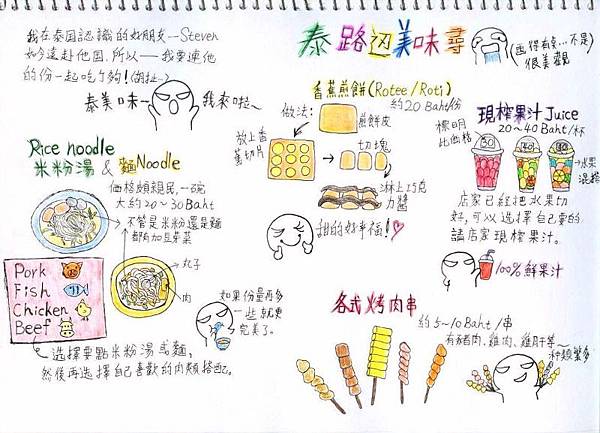 我在泰国認識的好朋友--Steven
如今遠赴他国,所以──我要連他
的份一起吃ㄉ夠!(胡扯~)
泰美味~
我來啦~
泰路边美味尋
(画得有点…不是
很美觀
香蕉煎餅(Rotee/Roti)
約20 Baht/份
做法:
煎餅皮
放上香
蕉切片
切塊
淋上巧克
力醬
甜的好幸福!
現榨果汁Juice
20~40 Baht/杯
標明
价格
30
40
水果
混搭
店家已經把水果切
好,可以选擇自己要的
請店家現榨果汁。
100%鲜果汁
Rice noodle
米粉湯 & 麵Noodle
価格頗親民,一碗
大約20~30Baht
不管是米粉還是麵
都有加豆芽菜
丸子
肉
Pork
Fish
Chicken
Beef
如果份量再多
一些就更
完美了。
選擇要點米粉湯或麵,
然後再选擇自己喜歡的肉類搭配。
各式烤肉串
約5~10Baht/串
有豬肉、雞肉、雞肝等~
种類繁多